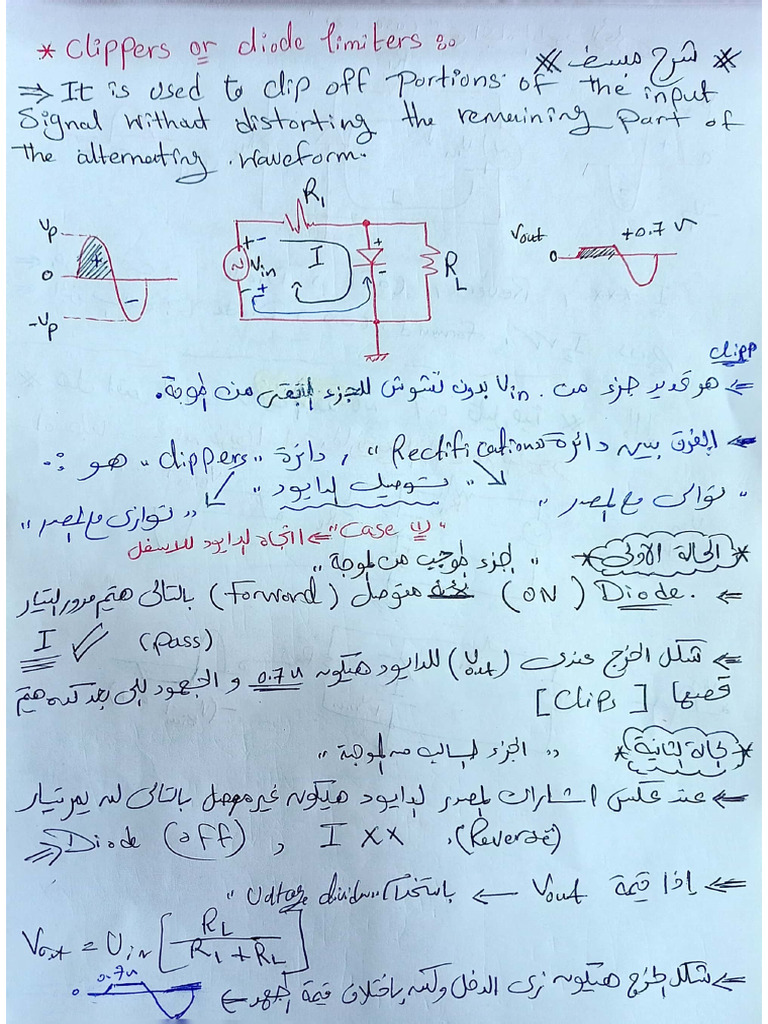 * Clippers or diode limiters :-
** شرح مبسط **
⇒ It is used to clip off Portions of the input
Signal without distorting the remaining part of
the alternating waveform.
Vp
0
-Vp
+
-
R1
+ -
Vin
- +
I
+
-
RL
Vout
0
+0.7 v
Clipp
⇐ هو قديد جزء من Vin بدون تشوش للجزء المتبقى من الموجة.
⇐ الفرق بين دائرة "Rectifications" , دائرة "clippers" هو :-
"توصيل الدايود"
"توالى مع المصدر"
"توازى مع المصدر"
"Case 1" ⇐ اتجاه الدايود للاسفل
* الحالة الاولى * "الجزء الموجب من الموجة"
⇐ Diode (ON) متوصل (Forward) بالتالى هتم مرور التيار
I ✓ (Pass)
⇐ شكل الخرج عندى (Vout) للدايود هيكون 0.7 v و الجهود اللى بعد كده هتم
قصها [Clips]
* الحالة الثانية * "الجزء السالب من الموجة"
⇐ عند عكس اشارات المصدر الدايود هيكون غير موصل بالتالى لن يمر تيار
⇒ Diode (off) , I XX . (Reverse)
⇐ إذا قيمة Vout ← باستخدام "Voltage divider"
Vout = Vin [ RL / R1 + RL ]
⇐ شكل الخرج هيكون زى الدخل ولكن باختلاف قيمة الجهد ←
0.7v
0